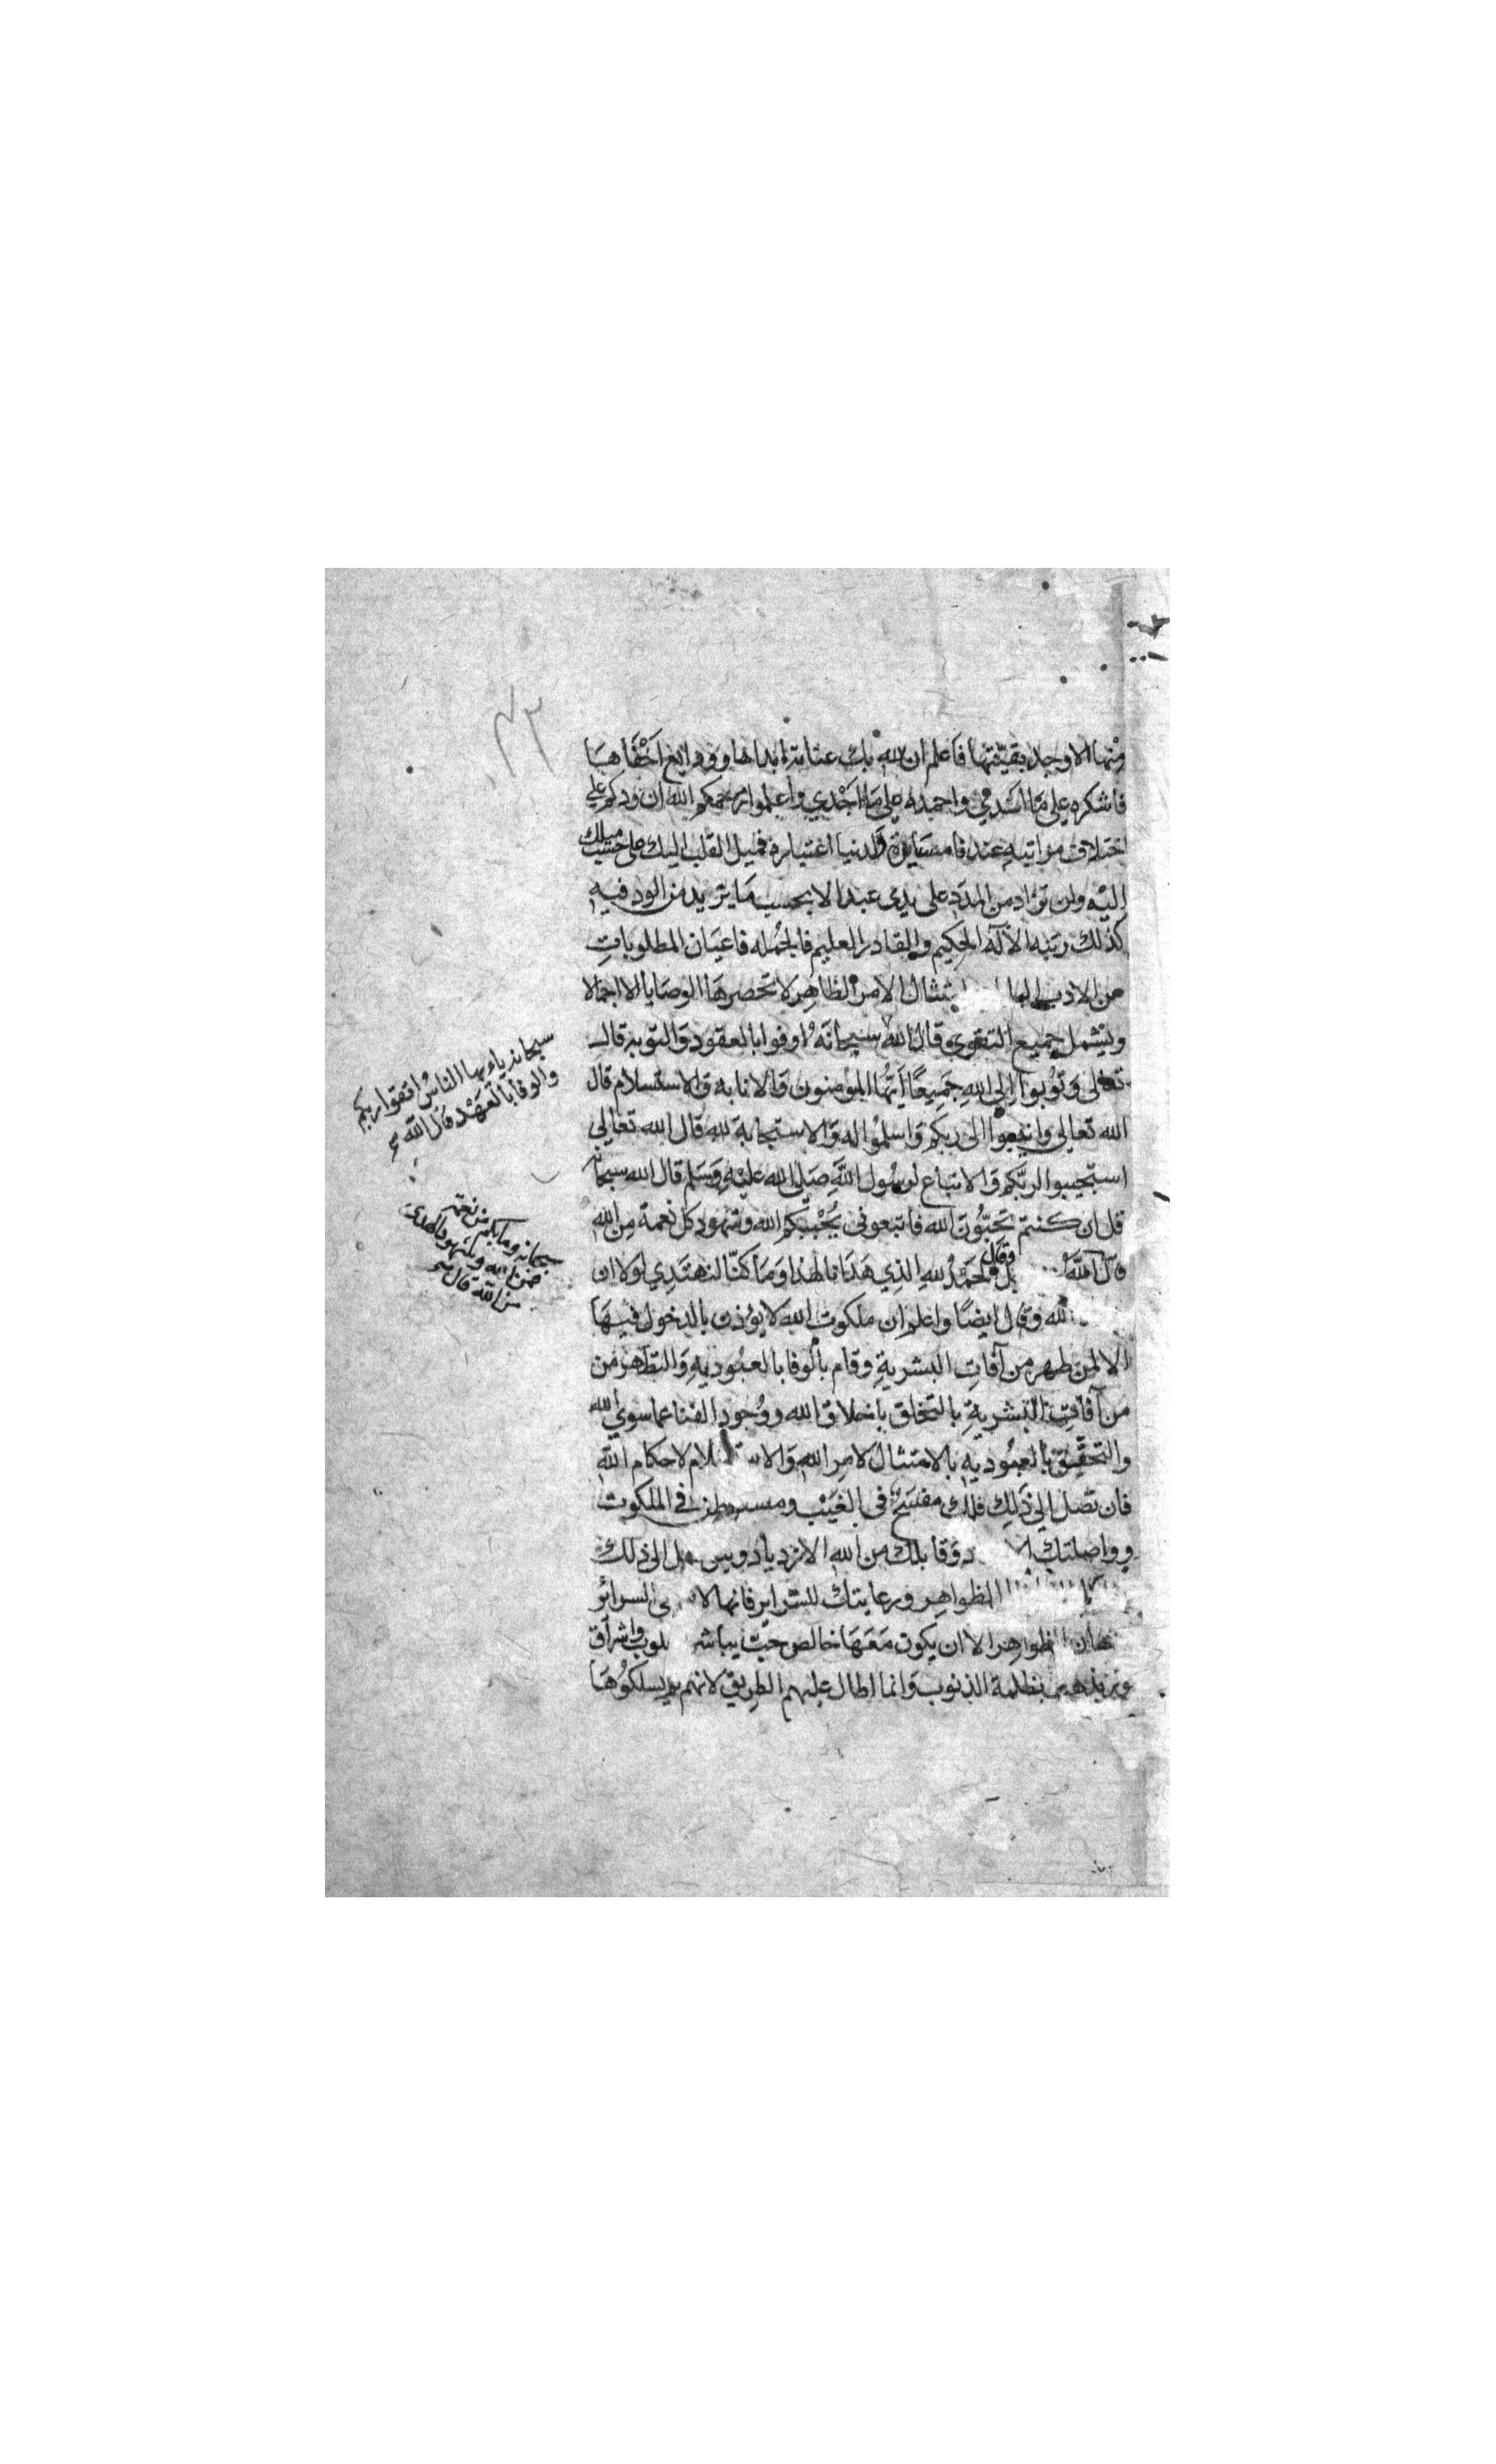 منها الا وجد بقيتها فاعلم ان لله بك عناية ابداها وودايع اخفاها
فاشكره على ما اسدى واحمده على ما اجدي واعلموا رحمكم الله ان ودكم على
اختلاف مراتبه عندنا اعتباره فميل القلب اليك على حسب ميلك
اليه ولن تزاد من المدد على يدى عبد الا بحسب ما يزيد من الود فيه
كذلك رتبه الاله الحكيم والقادر العليم فالجمله فاعيان المطلوبات
من الادب امتثال الامر الظاهر لا تحصرها الوصايا الا اجمالا
ويشمل جميع التقوى قال الله سبحانه اوفوا بالعقود والتوبه قال
تعالى وتوبوا الى الله جميعا ايها المؤمنون والانابه والاستسلام قال
الله تعالى وانيبوا الى ربكم واسلموا له والاستجابة لله قال الله تعالى
استجيبوا لربكم والاتباع لرسول الله صلى الله عليه وسلم قال الله سبحانه
قل ان كنتم تحبون الله فاتبعونى يحببكم الله وشهود كل نعمة من الله
قال الله وقال الحمد لله الذي هدانا لهذا وما كنا لنهتدي لولا ان
الله وقال ايضا واعلم ان ملكوت الله لا يؤذن بالدخول فيها
الا لمن طهر من آفات البشرية وقام بالوفا بالعبوديه والتطهر من
من آفات البشرية بالتخلق باخلاق الله ووجود الفنا عما سوى الله
والتحقيق بالعبوديه بالامتثال لامر الله والاستسلام لاحكام الله
فان تصل الى ذلك فلك مفسح فى الغيب في الملكوت
وواصلتك وقابلك من الله الازدياد الى ذلك
الظواهر ورعايتك للسراير فانها السرائر
الظواهر الا ان يكون معها خالص حب يباشر واشراق
بظلمة الذنوب وانما اطال عليهم الطريق لانهم لم يسلكوها
سبحانه ياءيها الناس اتقوا ربكم
والوفا بالعهد قال الله
سبحانه وما بكم من نعمة
فمن الله وشهود الهدى
من الله قال